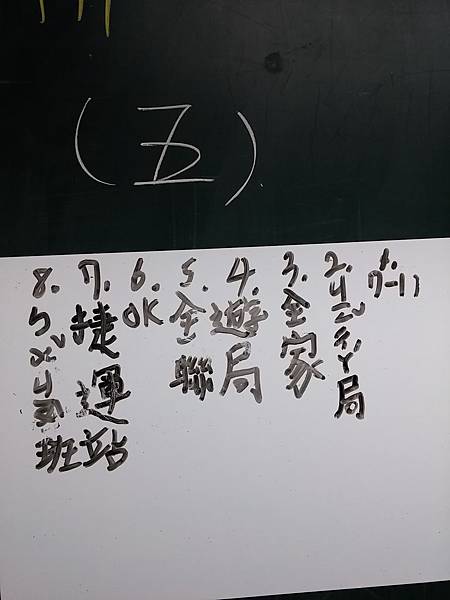 (五)
1.7-11
2.ㄐㄧㄥˇㄔㄚˊ局
3.全家
4.遊局
5.全聯
6.OK
7.捷運站
8.ㄅㄨˇ班